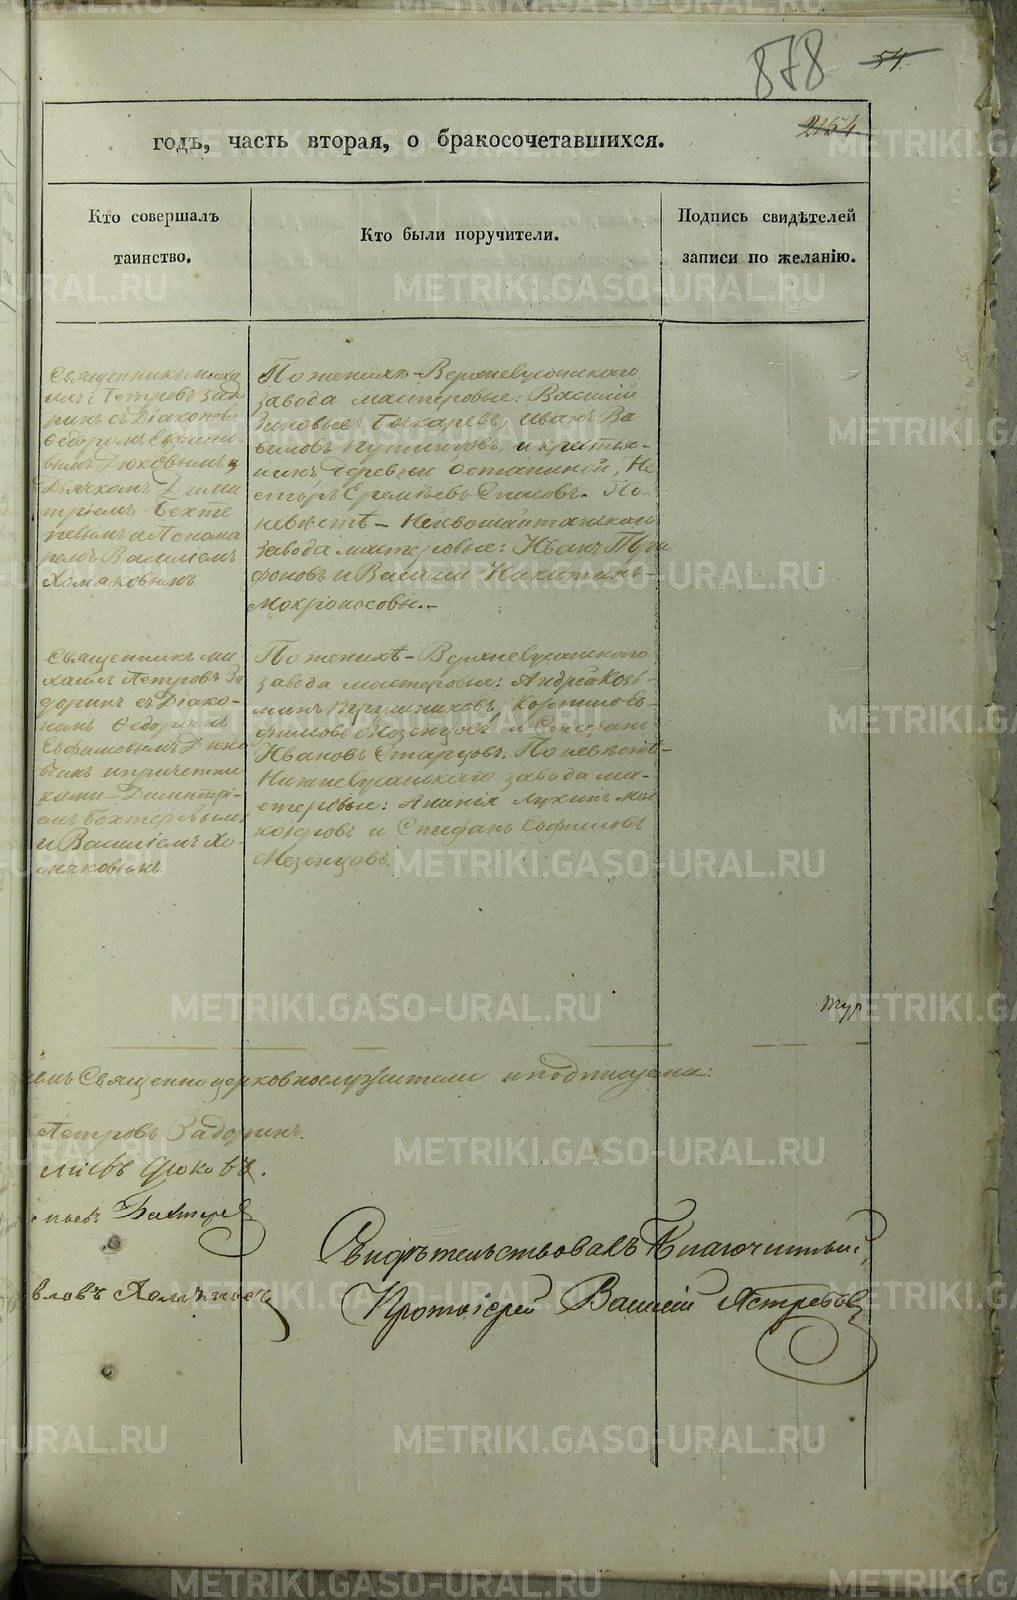 878 54.
2154
годъ, часть вторая, о бракосочетавшихся.
Кто совершалъ
таинство.
Кто были поручители.
Подпись свидѣтелей
записи по желанію.
Священникъ Миха
илъ Петровъ Задо
ринъ съ Діакономъ
Ѳедоромъ Евфимо-
вымъ Дюковымъ и
Дьячкомъ Дими
тріемъ Бехте
ревымъ и Понома
ремъ Василіемъ
Хомяковымъ
По женихѣ - Верхнетуринскаго
завода мастеровые: Василій
Бочкаревъ, Иванъ Ва
и крестья-
нинъ деревни Останиной, Не
сторъ Еремѣевъ По
невѣстѣ - Нейвошайтанскаго
завода мастеровые: Иванъ
и Василій Никитинъ -
Мокроносовы. -
Священникъ Ми
хаилъ Петровъ За
доринъ съ Діако-
номъ Ѳедоромъ
Евфимовымъ Дюко
вымъ и причетни
ками - Димитрі-
емъ Бехтеревымъ
и Василіемъ Хо-
мяковымъ.
По женихѣ -
завода мастеровые: Андрей Козь-
минъ Ев-
фимовъ Мезенцовъ и Стефанъ
Ивановъ Старцовъ. По невѣстѣ -
завода ма-
стеровые: Ананія Лукинъ
и Стефанъ Евфимовъ
Мезенцовъ.
Тур
Священно церковнослужители и подписуемся:
Петровъ Задоринъ.
Дюковъ.
Бехтерев
Хомяковъ
Свидѣтельствовалъ Благочинный,
Протоіерей Василій Ястребовъ
METRIKI.GASO-URAL.RU